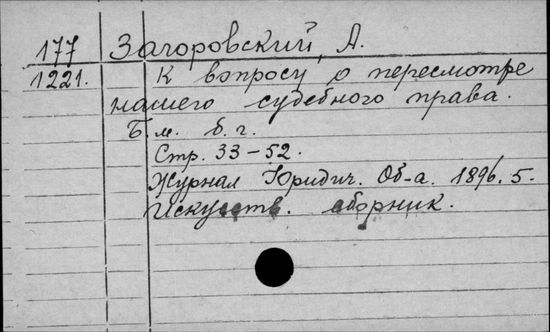 177 Загоровский, А.
1221. К вопросу о пересмотре
нашего судебного права.
Б.м. б. г.
Стр. 33-52.
Журнал Юридич. Об-а. 1896. 5.
Искусств. сборник.